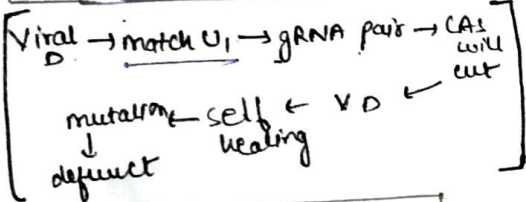 Viral D → match U₁ → gRNA pair → CAS will cut
mutation ← self healing ← VD ←
↓
defunct